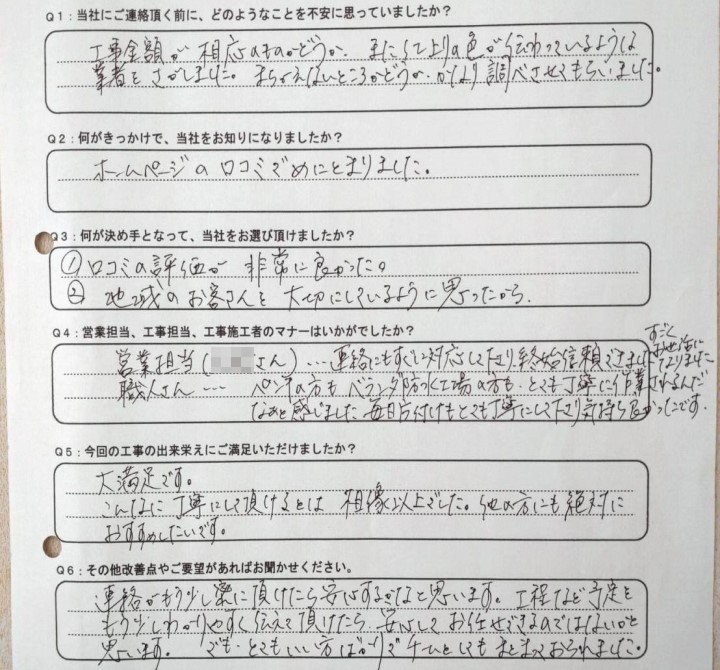 Q1：当社にご連絡頂く前に、どのようなことを不安に思っていましたか？
工事金額が相応のものかどうか、またくて上りの色が伝わっているような
業者をさがしました。まちがえないところかどうか、かなり調べさせてもらいました。
Q2：何がきっかけで、当社をお知りになりましたか？
ホームページの口コミでめにとまりました。
Q3：何が決め手となって、当社をお選び頂けましたか？
①口コミの評価が非常に良かった。
②地域のお客さんを大切にしているように思ったから。
Q4：営業担当、工事担当、工事施工者のマナーはいかがでしたか？
営業担当(さん)…連絡にもすぐに対応して下さり、終始信頼できました。すごくお世話になりました
職人さん…ペンキの方もベランダ防水工場の方も、とても丁寧に作業されるんだ
なぁと感じました。毎日片付けもとても丁寧にして下さり気持ち良かったです。
Q5：今回の工事の出来栄えにご満足いただけましたか？
大満足です。
こんなに丁寧にして頂けるとは想像以上でした。他の方にも絶対に
おすすめしたいです。
Q6：その他改善点やご要望があればお聞かせください。
連絡がもう少し密に頂けたら安心するかなと思います。工程など予定を
もう少しわかりやすく伝えて頂けたら、安心してお任せできるのではないかと
思います。でも、とてもいい方ばかりでチームとしてもまとまっておられました。